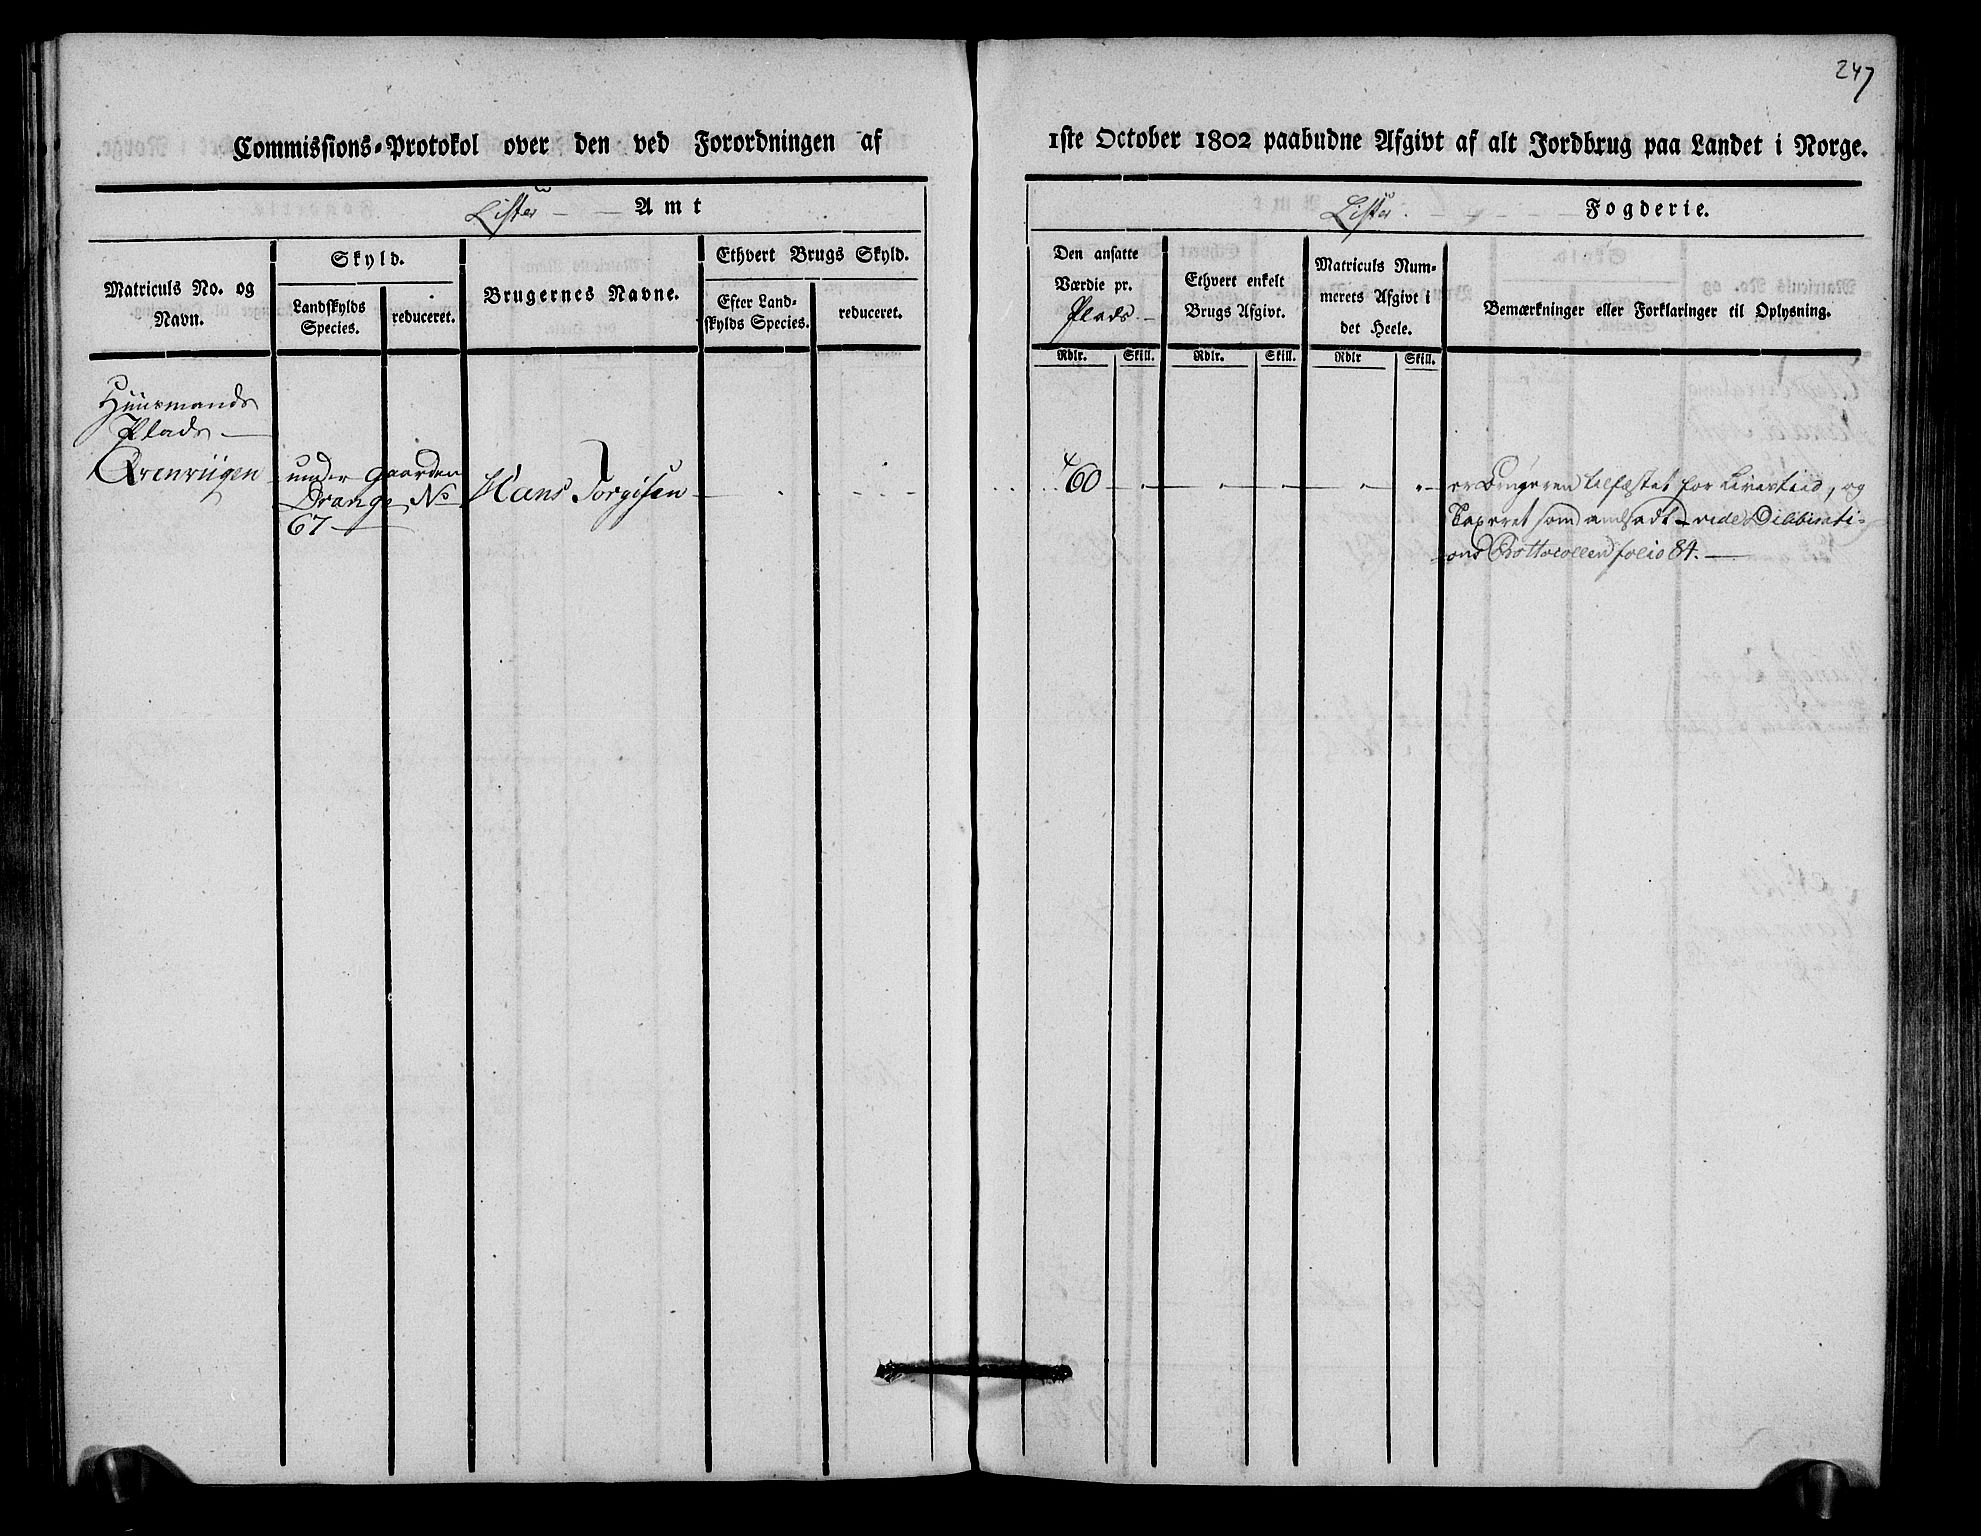 247
Commissions-Protokol over den ved Forordningen af 1ste October 1802 paabudne Afgivt af alt Jordbrug paa Landet i Norge.
Lister Amt
Lister Fogderie.
Matriculs No. og
Navn.
Skyld.
Landskylds
Species.
reduceret.
Brugernes Navne.
Ethvert Brugs Skyld.
Efter Land-
skylds Species.
reduceret.
Den ansatte
Værdie pr.
Plads
Rdlr. Skill.
Ethvert enkelt
Brugs Afgivt.
Rdlr. Skill.
Matriculs Num-
merets Afgivt i
det Heele.
Rdlr Skill.
Bemærkninger eller Forklaringer til Oplysning.
Huusmands
Plads
under Gaarden
Drange No
67
Hans Torgisen
60
er Brugeren tilfæstet for Livstiid, og
Taxeret som andsadt vide Delibirati-
ons Prottocollen folio 84.